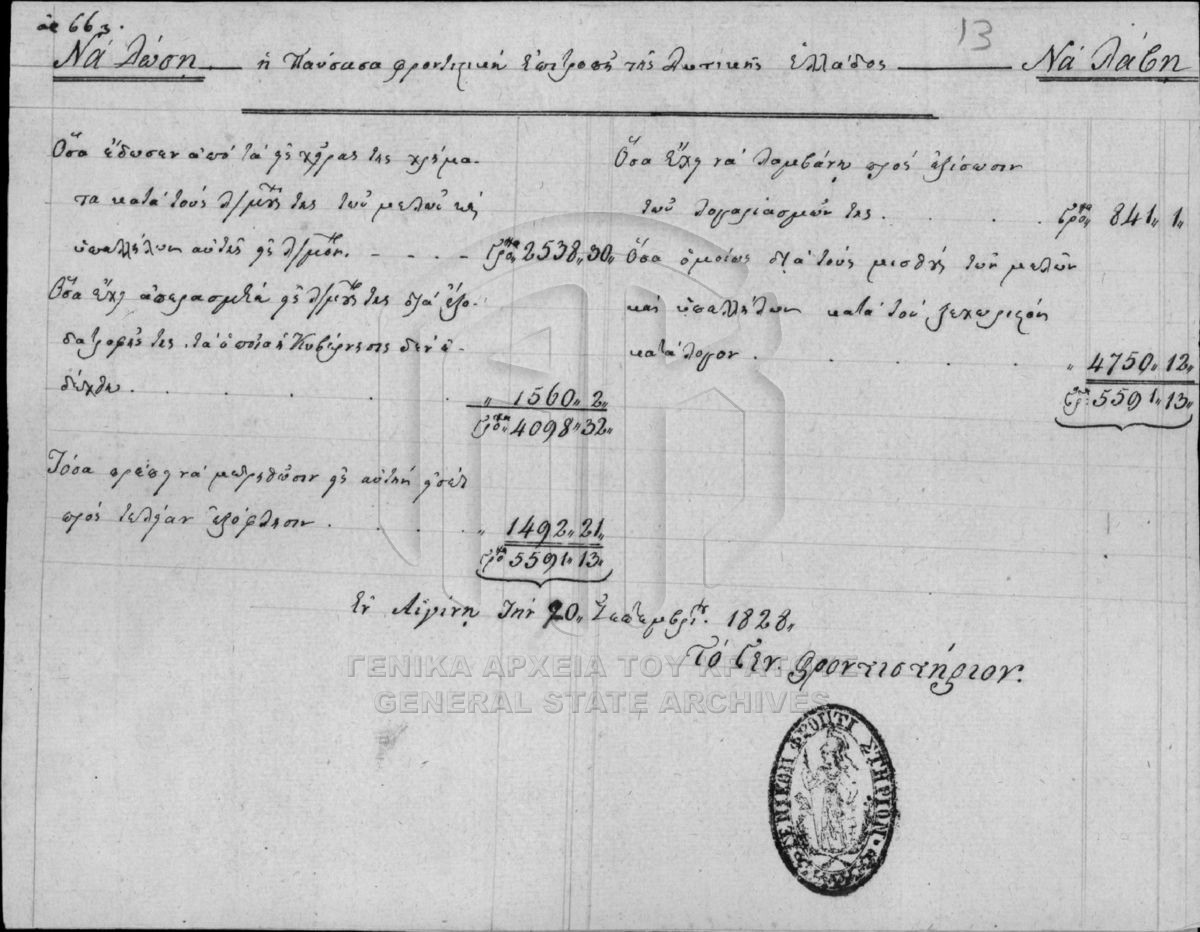 αρ 663.
13
Νά Δώση ἡ Παύσασα φροντιστική Ἐπιτροπή τῆς Δυτικῆς Ἑλλάδος Νά Λάβη
Ὅσα ἔδωσεν ἀπό τά εἰς χεῖρας της χρήμα-
τα κατά τούς λ/μούς της τῶν μελῶν καί
ὑπαλλήλων αὐτῆς εἰς λ/μόν. - - - - Γρό 2538,, 30,,
Ὅσα ἔχει ἀπερασμένα εἰς λ/μούς της διά ἔξο-
δατροφῆς της, τά ὁποῖα ἡ Κυβέρνησις δέν ἐ-
δέχθη . . . . . . ,, 1560,, 2,,
Γρό 4098,, 32,,
Τόσα πρέπει νά μετρηθῶσιν εἰς αὐτήν
πρός τελείαν ἐξόφλησιν . . . . ,, 1492,, 21,,
Γρό 5591,, 13,,
Ὅσα ἔχει νά λαμβάνη πρός ἐξίσωσιν
τῶν λογαριασμῶν της . . . . Γρό 841,, 1,,
Ὅσα ὁμοίως διά τούς μισθούς τῶν μελῶν
καί ὑπαλλήλων κατά τόν ξεχωριστόν
κατάλογον . . . . . ,, 4750,, 12,,
Γρ: 5591,, 13,,
Ἐν Αἰγίνη τήν 20,, 1828,,
Τό Γεν. Φροντιστήριον.
ΓΕΝΙΚΑ ΑΡΧΕΙΑ ΤΟΥ ΚΡΑΤΟΥΣ
GENERAL STATE ARCHIVES
ΓΕΝΙΚΟΝ ΦΡΟΝΤΙΣΤΗΡΙΟΝ